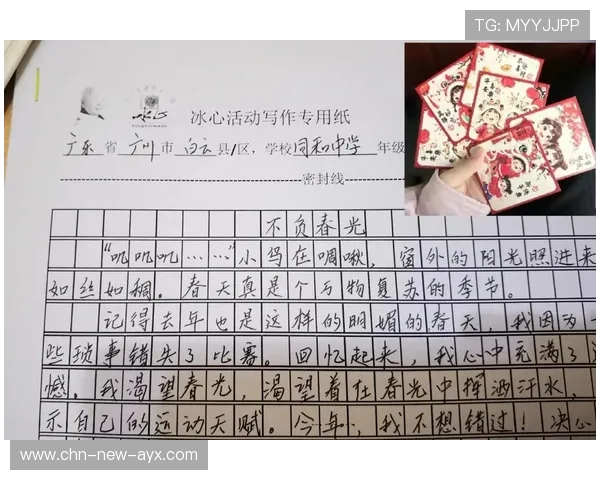 TG: MYYJJPP
冰心活动写作专用纸
广东省 广州市 白云县/区，学校 同和中学 年级
密封线
不负春光
“叽叽叽……”小鸟在啁啾，窗外的阳光照进来
如丝如稠。春天真是个万物复苏的季节。
记得去年也是这样的明媚的春天，我因为一
些琐事错失了比赛。回忆起来，我心中充满了
憾。我渴望春光，渴望着在春光中挥洒汗水，
示自己的运动天赋。今年，我不想错过！决心
www.chn-new-ayx.com